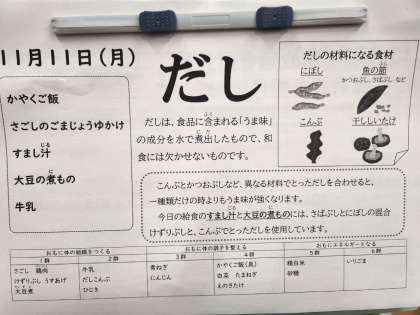 11月11日(月)
だし
かやくご飯
さごしのごまじょうゆかけ
すまし汁
じる
大豆の煮もの
に
牛乳
だしは、食品に含まれる「うま味」
ふく
の成分を水で煮出したもので、和
にだ
食には欠かせないものです。
だしの材料になる食材
にぼし
魚の節
ふし
かつおぶし、さばぶし など
こんぶ
干ししいたけ
こんぶとかつおぶしなど、異なる材料でとっただしを合わせると、
一種類だけの時よりもうま味が強くなります。
今日の給食のすまし汁と大豆の煮ものには、さばぶしとにぼしの混合
けずりぶしと、こんぶでとっただしを使用しています。
おもに体の組織をつくる
おもに体の調子を整える
おもにエネルギーとなる
1群 2群 3群 4群 5群 6群
さごし 鶏肉
けずりぶし うすあげ
大豆煮
牛乳
だしこんぶ
ひじき
青ねぎ
にんじん
かやくご飯(具)
白菜 たまねぎ
えのきたけ
精白米
砂糖
いりごま